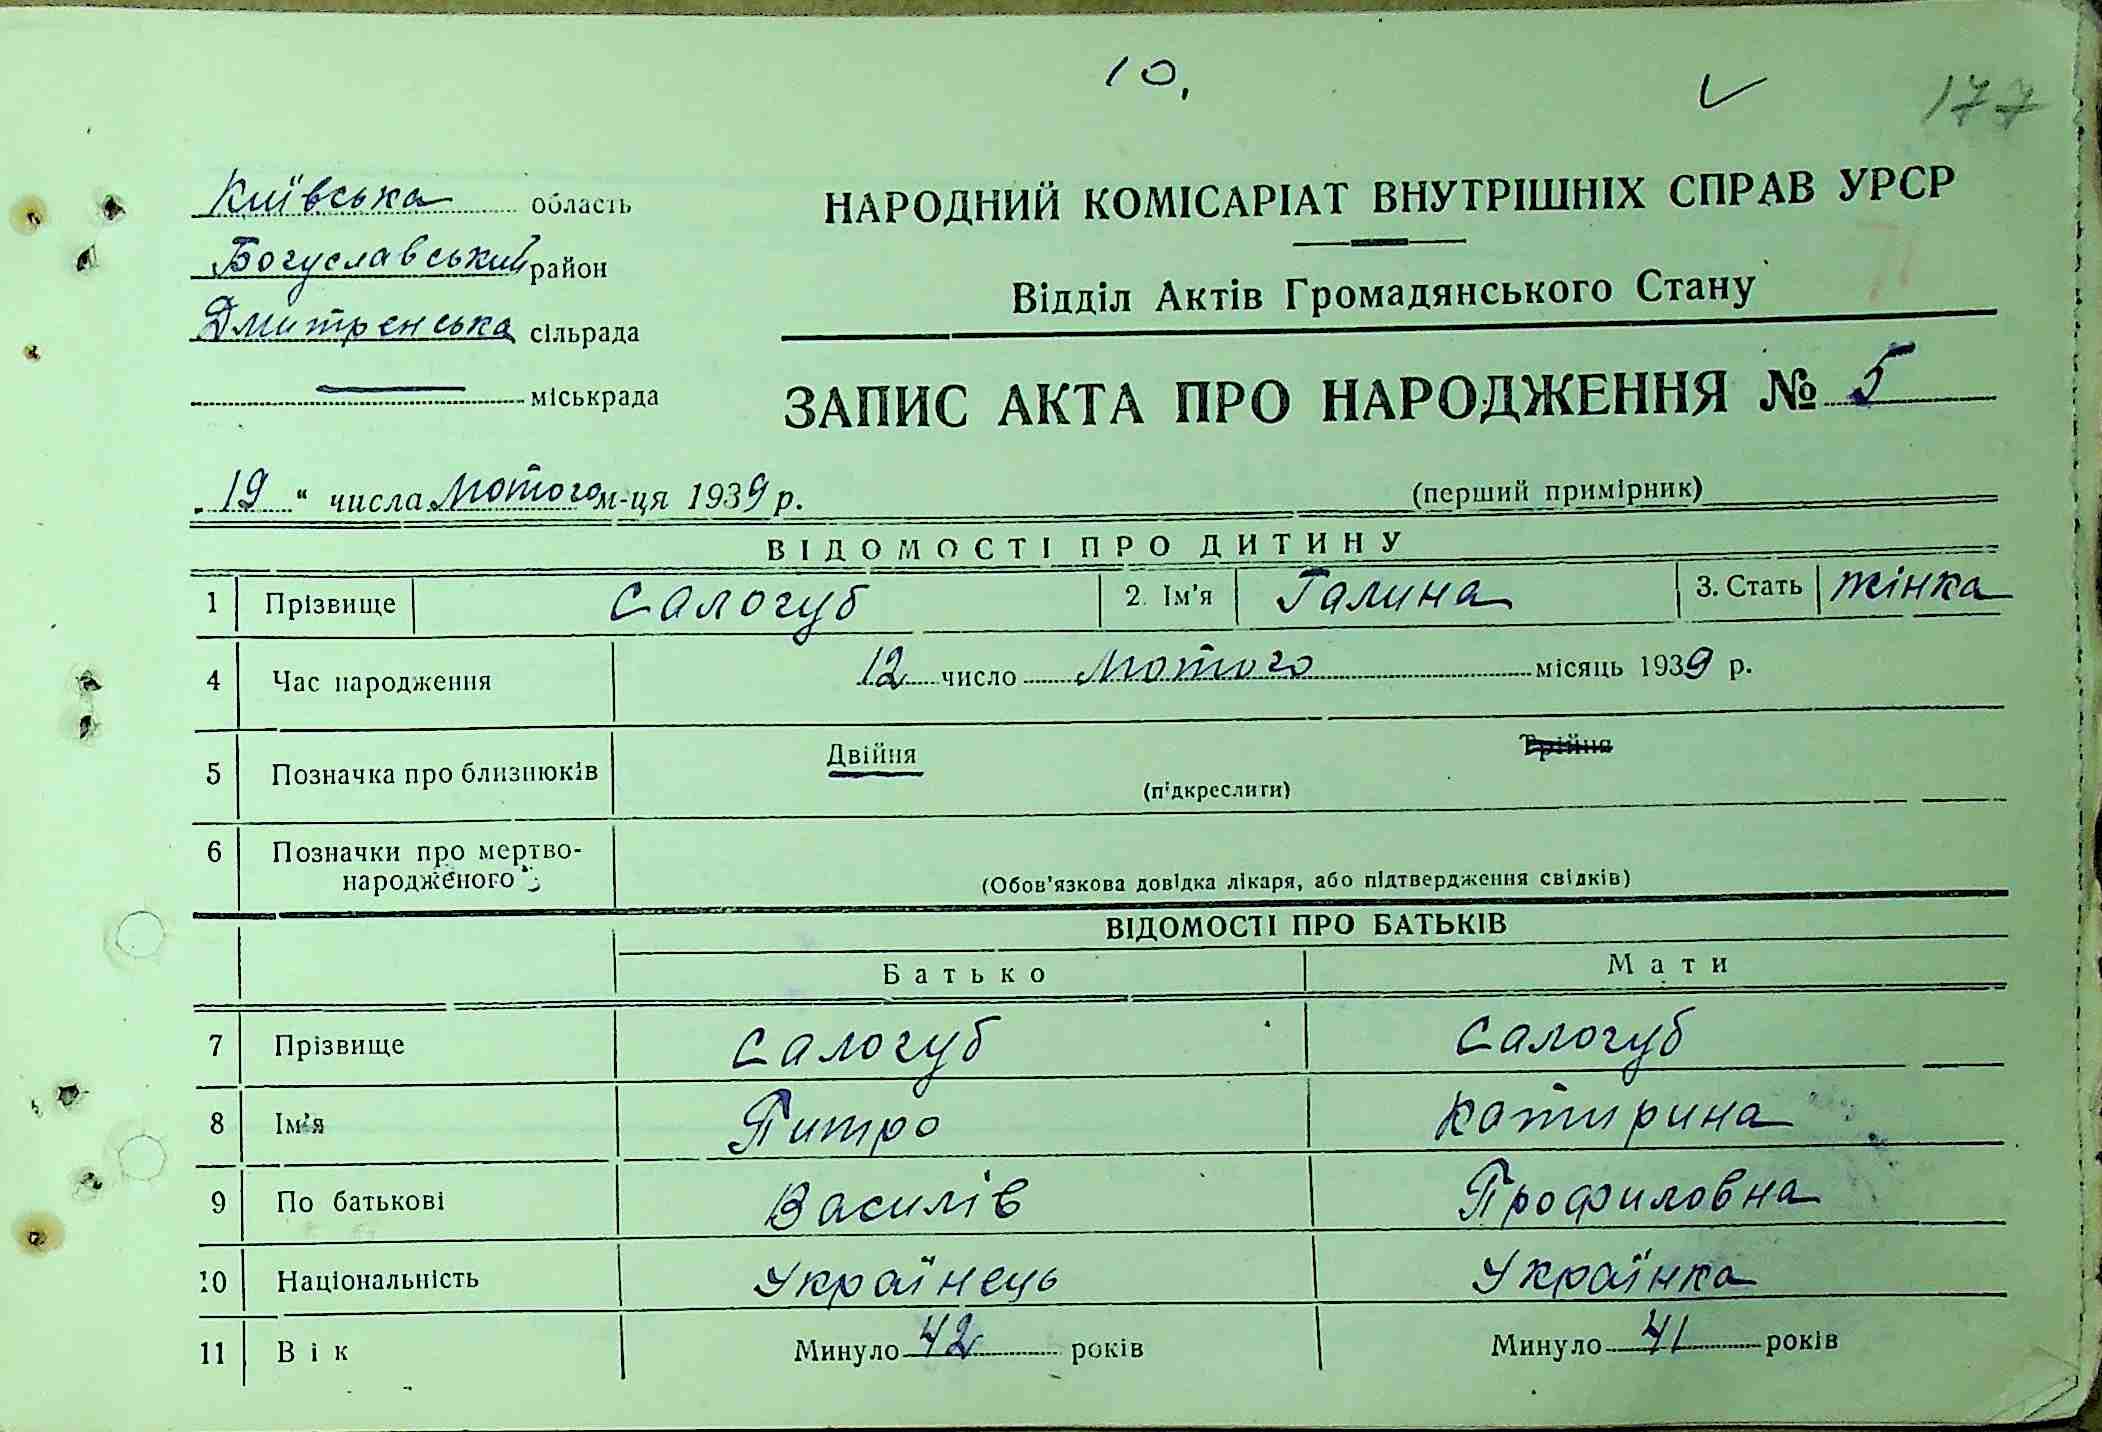 10,
177
Київська область
Богуславський район
Дмитренська сільрада
міськрада
НАРОДНИЙ КОМІСАРІАТ ВНУТРІШНІХ СПРАВ УРСР
Відділ Актів Громадянського Стану
ЗАПИС АКТА ПРО НАРОДЖЕННЯ № 5
„19“ числа Лютого м-ця 1939 р.
(перший примірник)
ВІДОМОСТІ ПРО ДИТИНУ
1 Прізвище Салогуб 2. Ім'я Галина 3. Стать жінка
4 Час народження 12 число Лютого місяць 1939 р.
5 Позначка про близнюків Двійня Трійня
(підкреслити)
6 Позначки про мертво-
народженого
(Обов'язкова довідка лікаря, або підтвердження свідків)
ВІДОМОСТІ ПРО БАТЬКІВ
Батько Мати
7 Прізвище Салогуб Салогуб
8 Ім'я Питро Катирина
9 По батькові Василів Профиловна
10 Національність Українець Українка
11 Вік Минуло 42 років Минуло 41 років